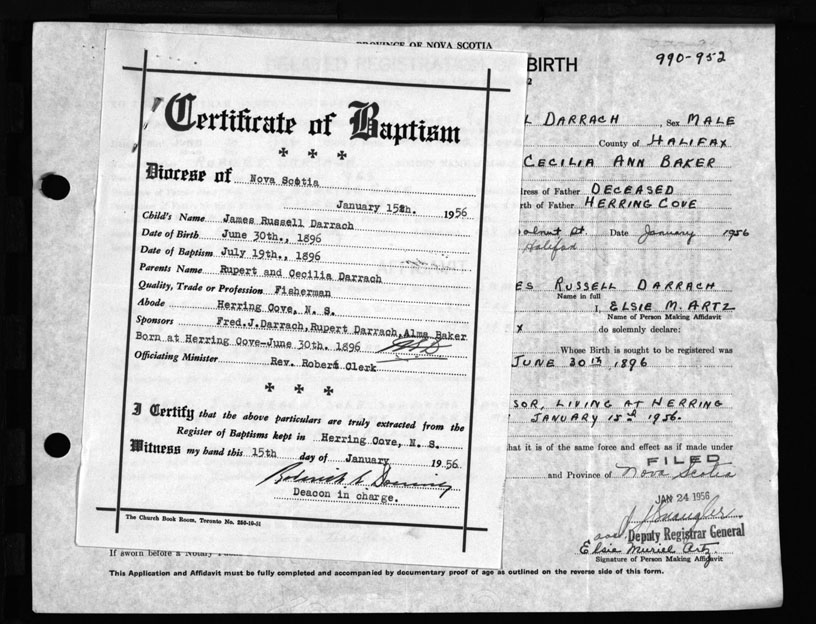 PROVINCE OF NOVA SCOTIA
BIRTH
990-952
Certificate of Baptism
Diocese of Nova Scotia
January 15th. 1956
Child's Name James Russell Darrach
Date of Birth June 30th., 1896
Date of Baptism July 19th., 1896
Parents Name Rupert and Cecilia Darrach
Quality, Trade or Profession Fisherman
Abode Herring Cove, N. S.
Sponsors Fred.J.Darrach,Rupert Darrach,Alma Baker
Born at Herring Cove-June 30th. 1896
Officiating Minister Rev. Robert Clerk
I Certify that the above particulars are truly extracted from the
Register of Baptisms kept in Herring Cove, N. S.
Witness my hand this 15th day of January 1956.
Deacon in charge.
The Church Book Room, Toronto No. 250-10-51
L DARRACH, Sex MALE
County of HALIFAX
CECILIA ANN BAKER
dress of Father DECEASED
rth of Father HERRING COVE
St. Date January 1956
Halifax
ES RUSSELL DARRACH
Name in full
I, ELSIE M. ARTZ
Name of Person Making Affidavit
X do solemnly declare:
Whose Birth is sought to be registered was
JUNE 30th, 1896
SOR, LIVING AT HERRING
JANUARY 15th 1956.
hat it is of the same force and effect as if made under
FILED
and Province of Nova Scotia
JAN 24 1956
Deputy Registrar General
Elsie Muriel Artz.
Signature of Person Making Affidavit
If sworn before a Notary
This Application and Affidavit must be fully completed and accompanied by documentary proof of age as outlined on the reverse side of this form.